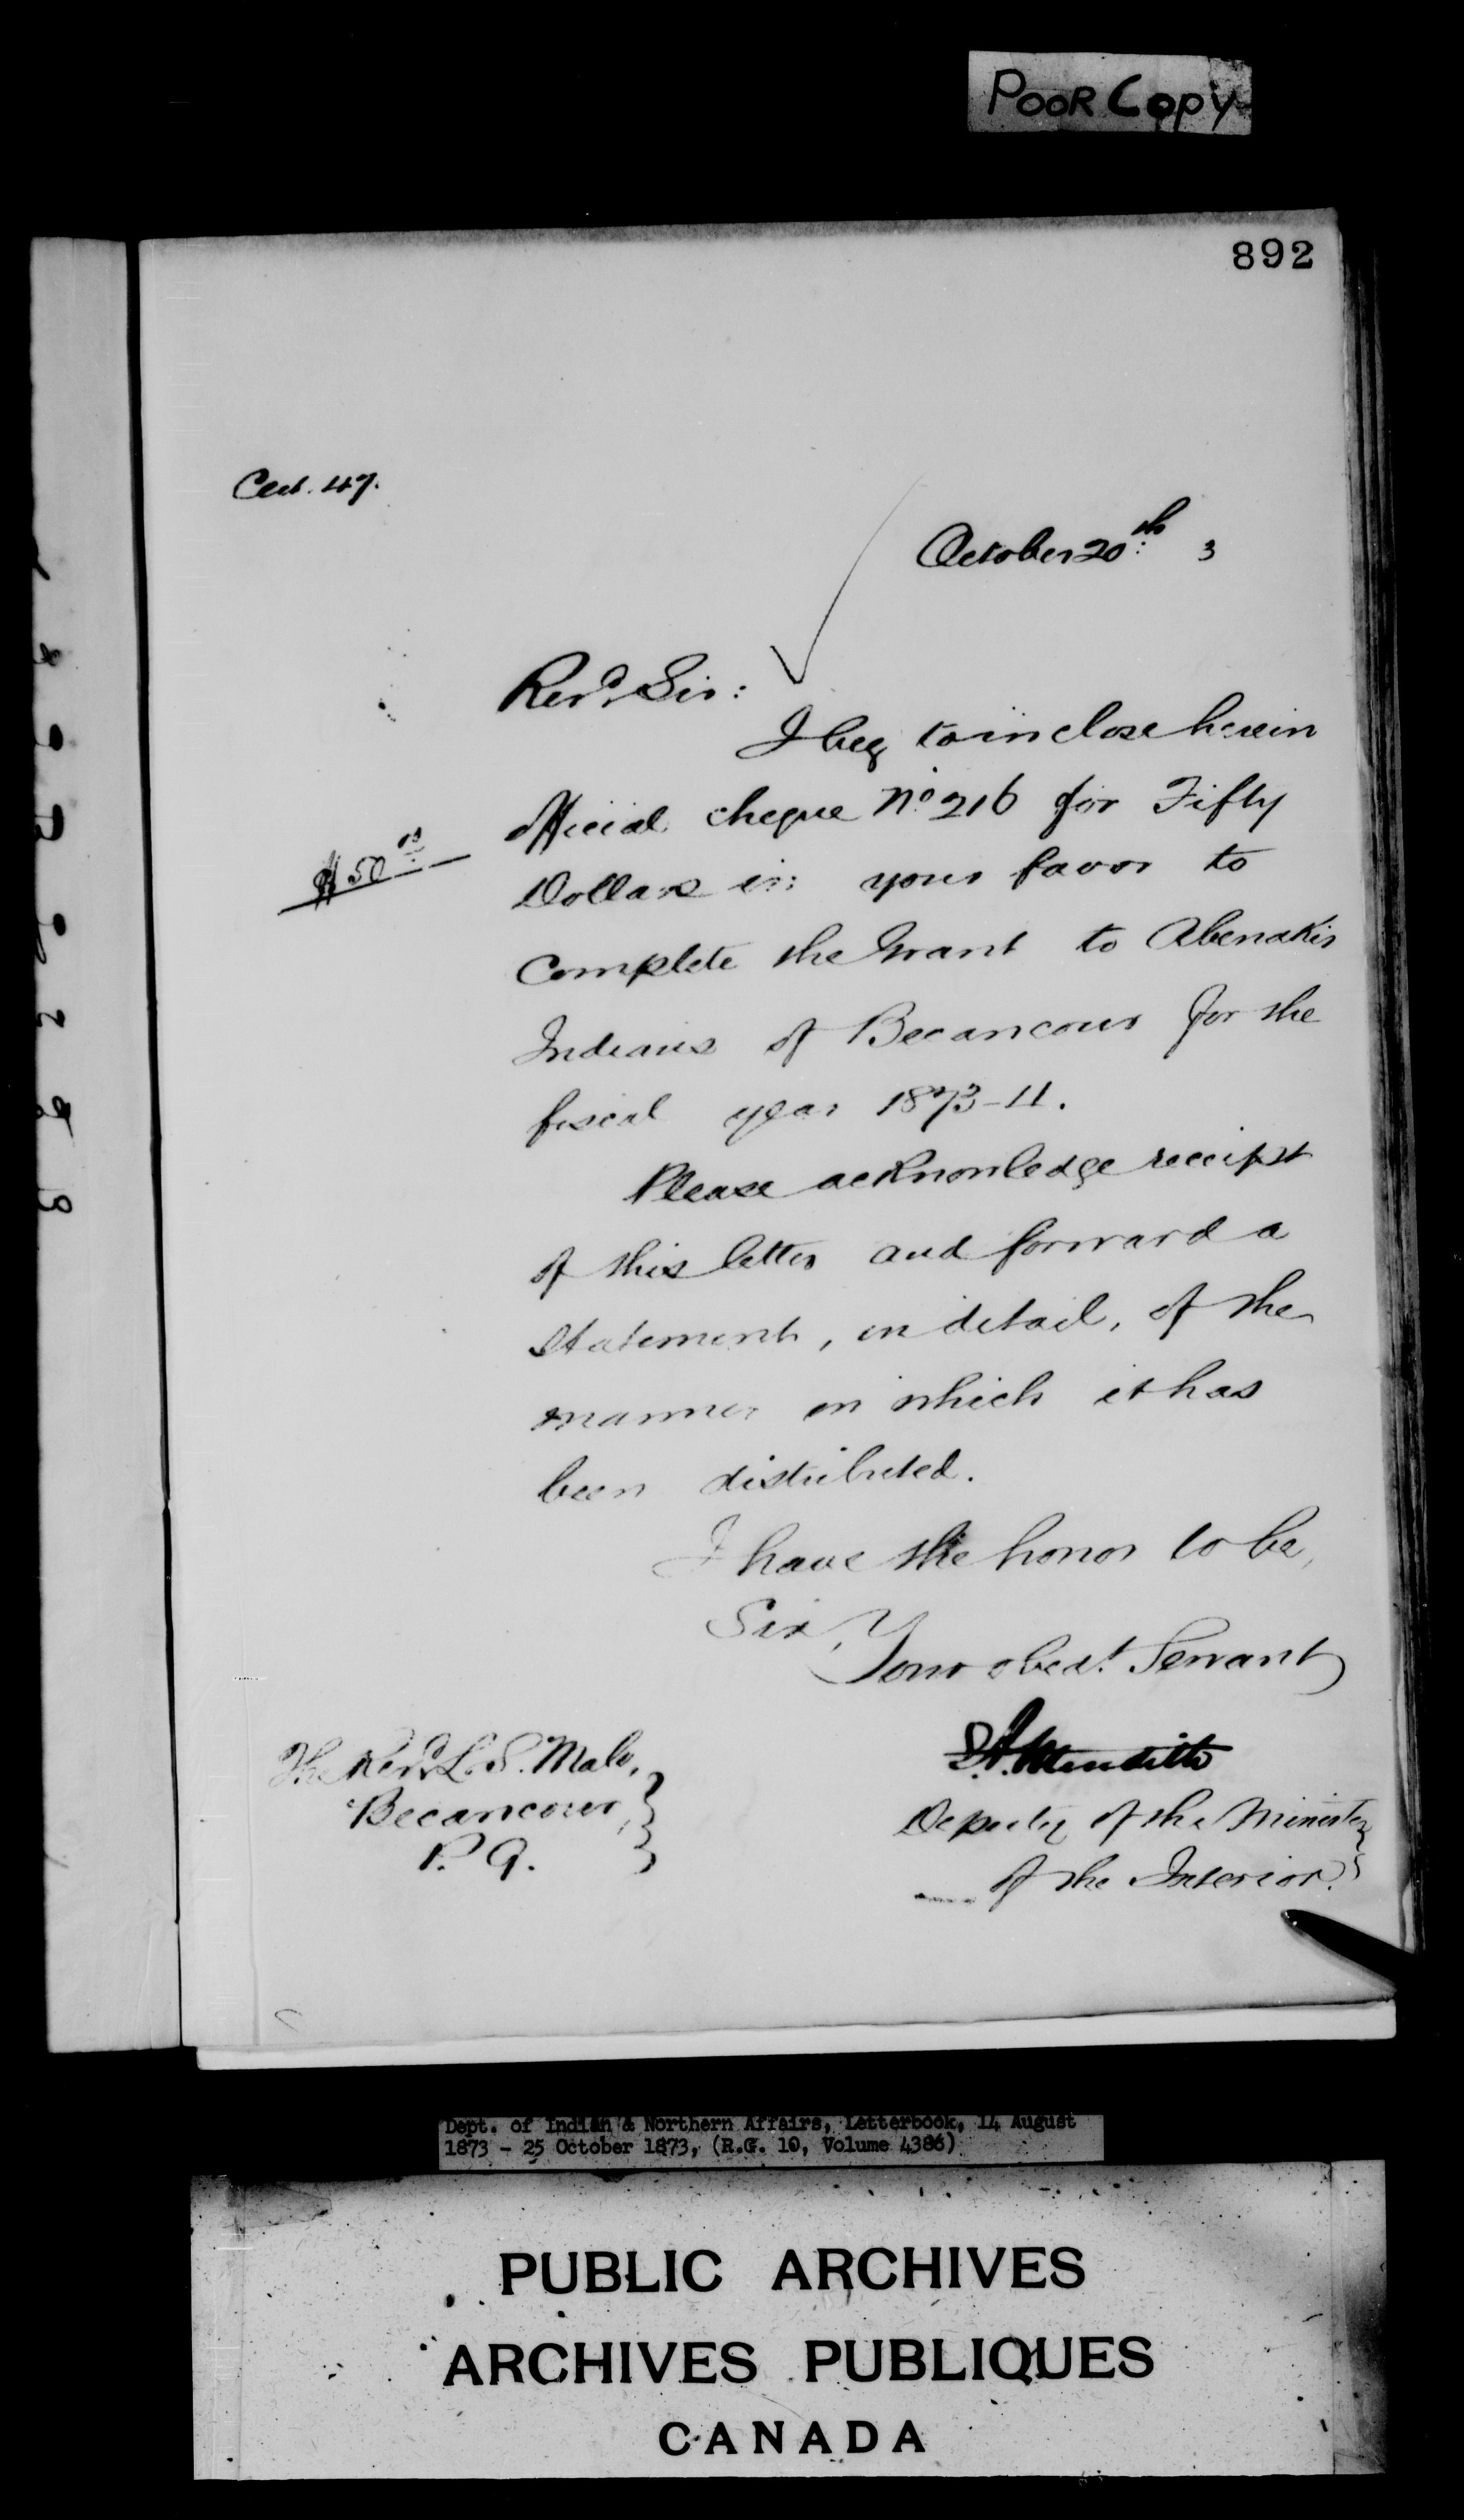 POOR COPY
892
Cert. 47.
October 20th 3
Revd. Sir:
I beg to inclose herein
official cheque No. 216 for Fifty
$50
Dollars in your favor to
complete the Grant to Abenakis
Indians of Becancour for the
fiscal year 1873-4.
Please acknowledge receipt
of this letter and forward a
statement, in detail, of the
manner in which it has
been distributed.
I have the honor to be,
Sir,
Your obedt. Servant
The Revd. L. S. Malo,
Becancour,
P. Q.
E. A. Meredith
Deputy of the Minister
of the Interior.
Dept. of Indian & Northern Affairs, Letterbook, 14 August
1873 - 25 October 1873, (R.G. 10, Volume 4386)
PUBLIC ARCHIVES
ARCHIVES PUBLIQUES
CANADA